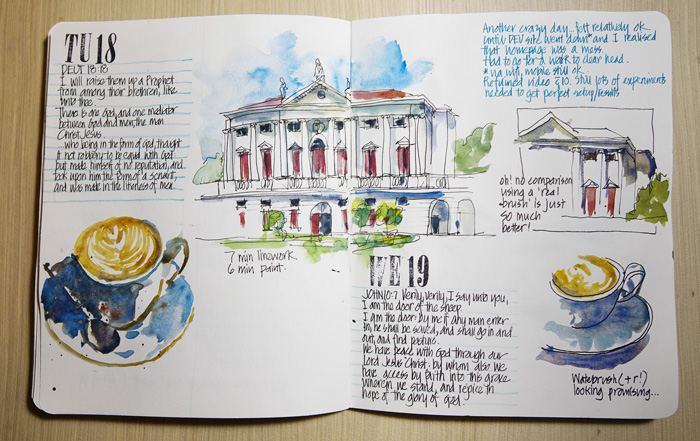 TU18
DEUT 18:18
I will raise them up a Prophet
from among their brethren, like
unto thee.
There is one God, and one mediator
between God and men, the man
Christ Jesus.
...who being in the form of God, thought
it not robbery to be equal with God
but made himself of no reputation, and
took upon him the form of a servant,
and was made in the likeness of men.
7 min linework
6 min paint.
Another crazy day... felt relatively ok
until DEV site went down* and I realised
that homepage was a mess.
Had to go for a walk to clear head.
* via wifi, mobile still ok.
Returned video @ 10. Still lots of experiments
needed to get perfect setup/results
oh! no comparison
using a 'real
brush' is just
so much
better!
WE 19
JOHN 10:7 Verily, verily, I say unto you,
I am the door of the sheep.
I am the door: by me if any man enter
in, he shall be saved, and shall go in and
out, and find pasture.
We have peace with God through our
Lord Jesus Christ: by whom also we
have access by faith into this grace
wherein we stand, and rejoice in
hope of the glory of God.
Waterbrush (+r!)
looking promising...